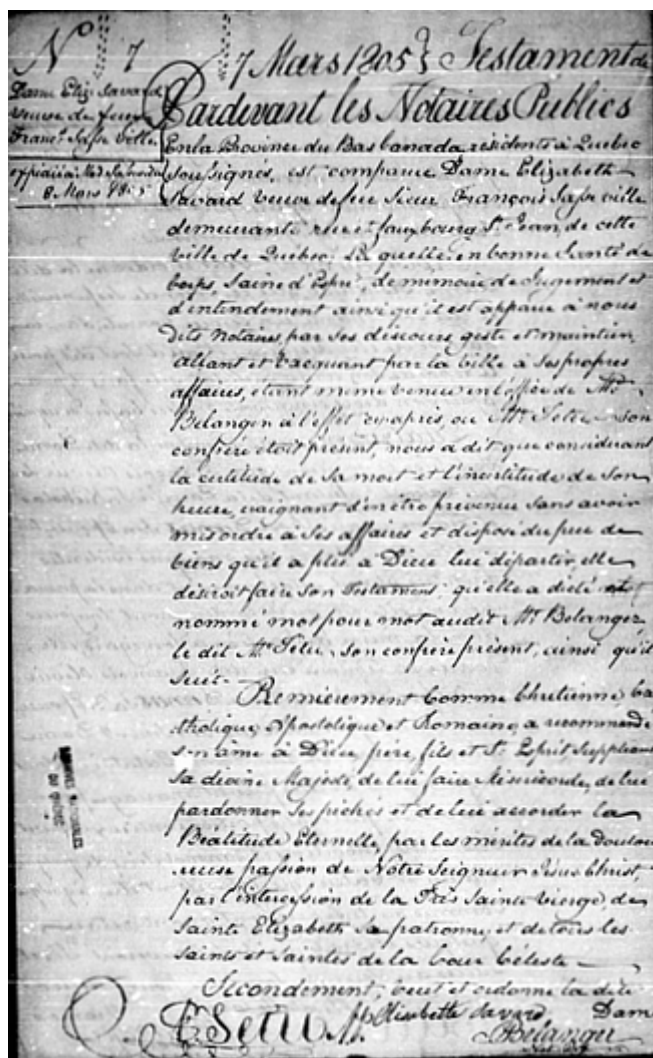 N° 7
7 Mars 1805 Testament de
Dame Eliz: Savard
veuve de feu
Frans. Jasse. Ville
8 Mars 1805
Pardevant les Notaires Publics
En la Province du Bas Canada résidents à Québec
soussignés, est comparue Dame Elizabeth
Savard veuve de feu Sieur François Jasse ville
demeurante rue et fauxbourg St. Jean, de cette
ville de Québec: Laquelle en bonne Santé de
Corps, Saine d'Esprit, de mémoire de Jugement et
d'entendement ainsi qu'il est apparue à nous
dits Notaires, par ses discours, geste et maintien,
allant et vacquant par la ville à ses propres
affaires, étant même venue en l'office de Mtre.
Belanger à l'effet cy après, où Mtre. Tetu son
confrère étoit présent, nous a dit que considérant
la certitude de sa mort et l'incertitude de son
heure, craignant d'en être prévenue sans avoir
mis ordre à ses affaires et disposé du peu de
biens qu'il a plû à Dieu lui départir, elle
désiroit faire son Testament qu'elle a dicté et
nommé mot pour mot audit Mtre. Belanger
le dit Mtre. Tetu son confrère présent, ainsi qu'il
suit.
Premièrement Comme Chrétienne, Ca
tholique, Apostolique et Romaine, a recommandé
son âme à Dieu, père, fils et St. Esprit, Suppliant
sa divine Majesté, de lui faire Miséricorde, de lui
pardonner ses péchés et de lui accorder la
Béatitude Eternelle, par les mérites de la Doulou
reuse passion de Notre Seigneur Jesus Christ,
par l'intercession de la Très Sainte Vierge, de
Sainte Elizabeth sa patronne et de tous les
saints et saintes de la Cour Céleste
Secondement, veut et ordonne la dite
Elisabette Savard Dame
F. Tetu N.
Belanger